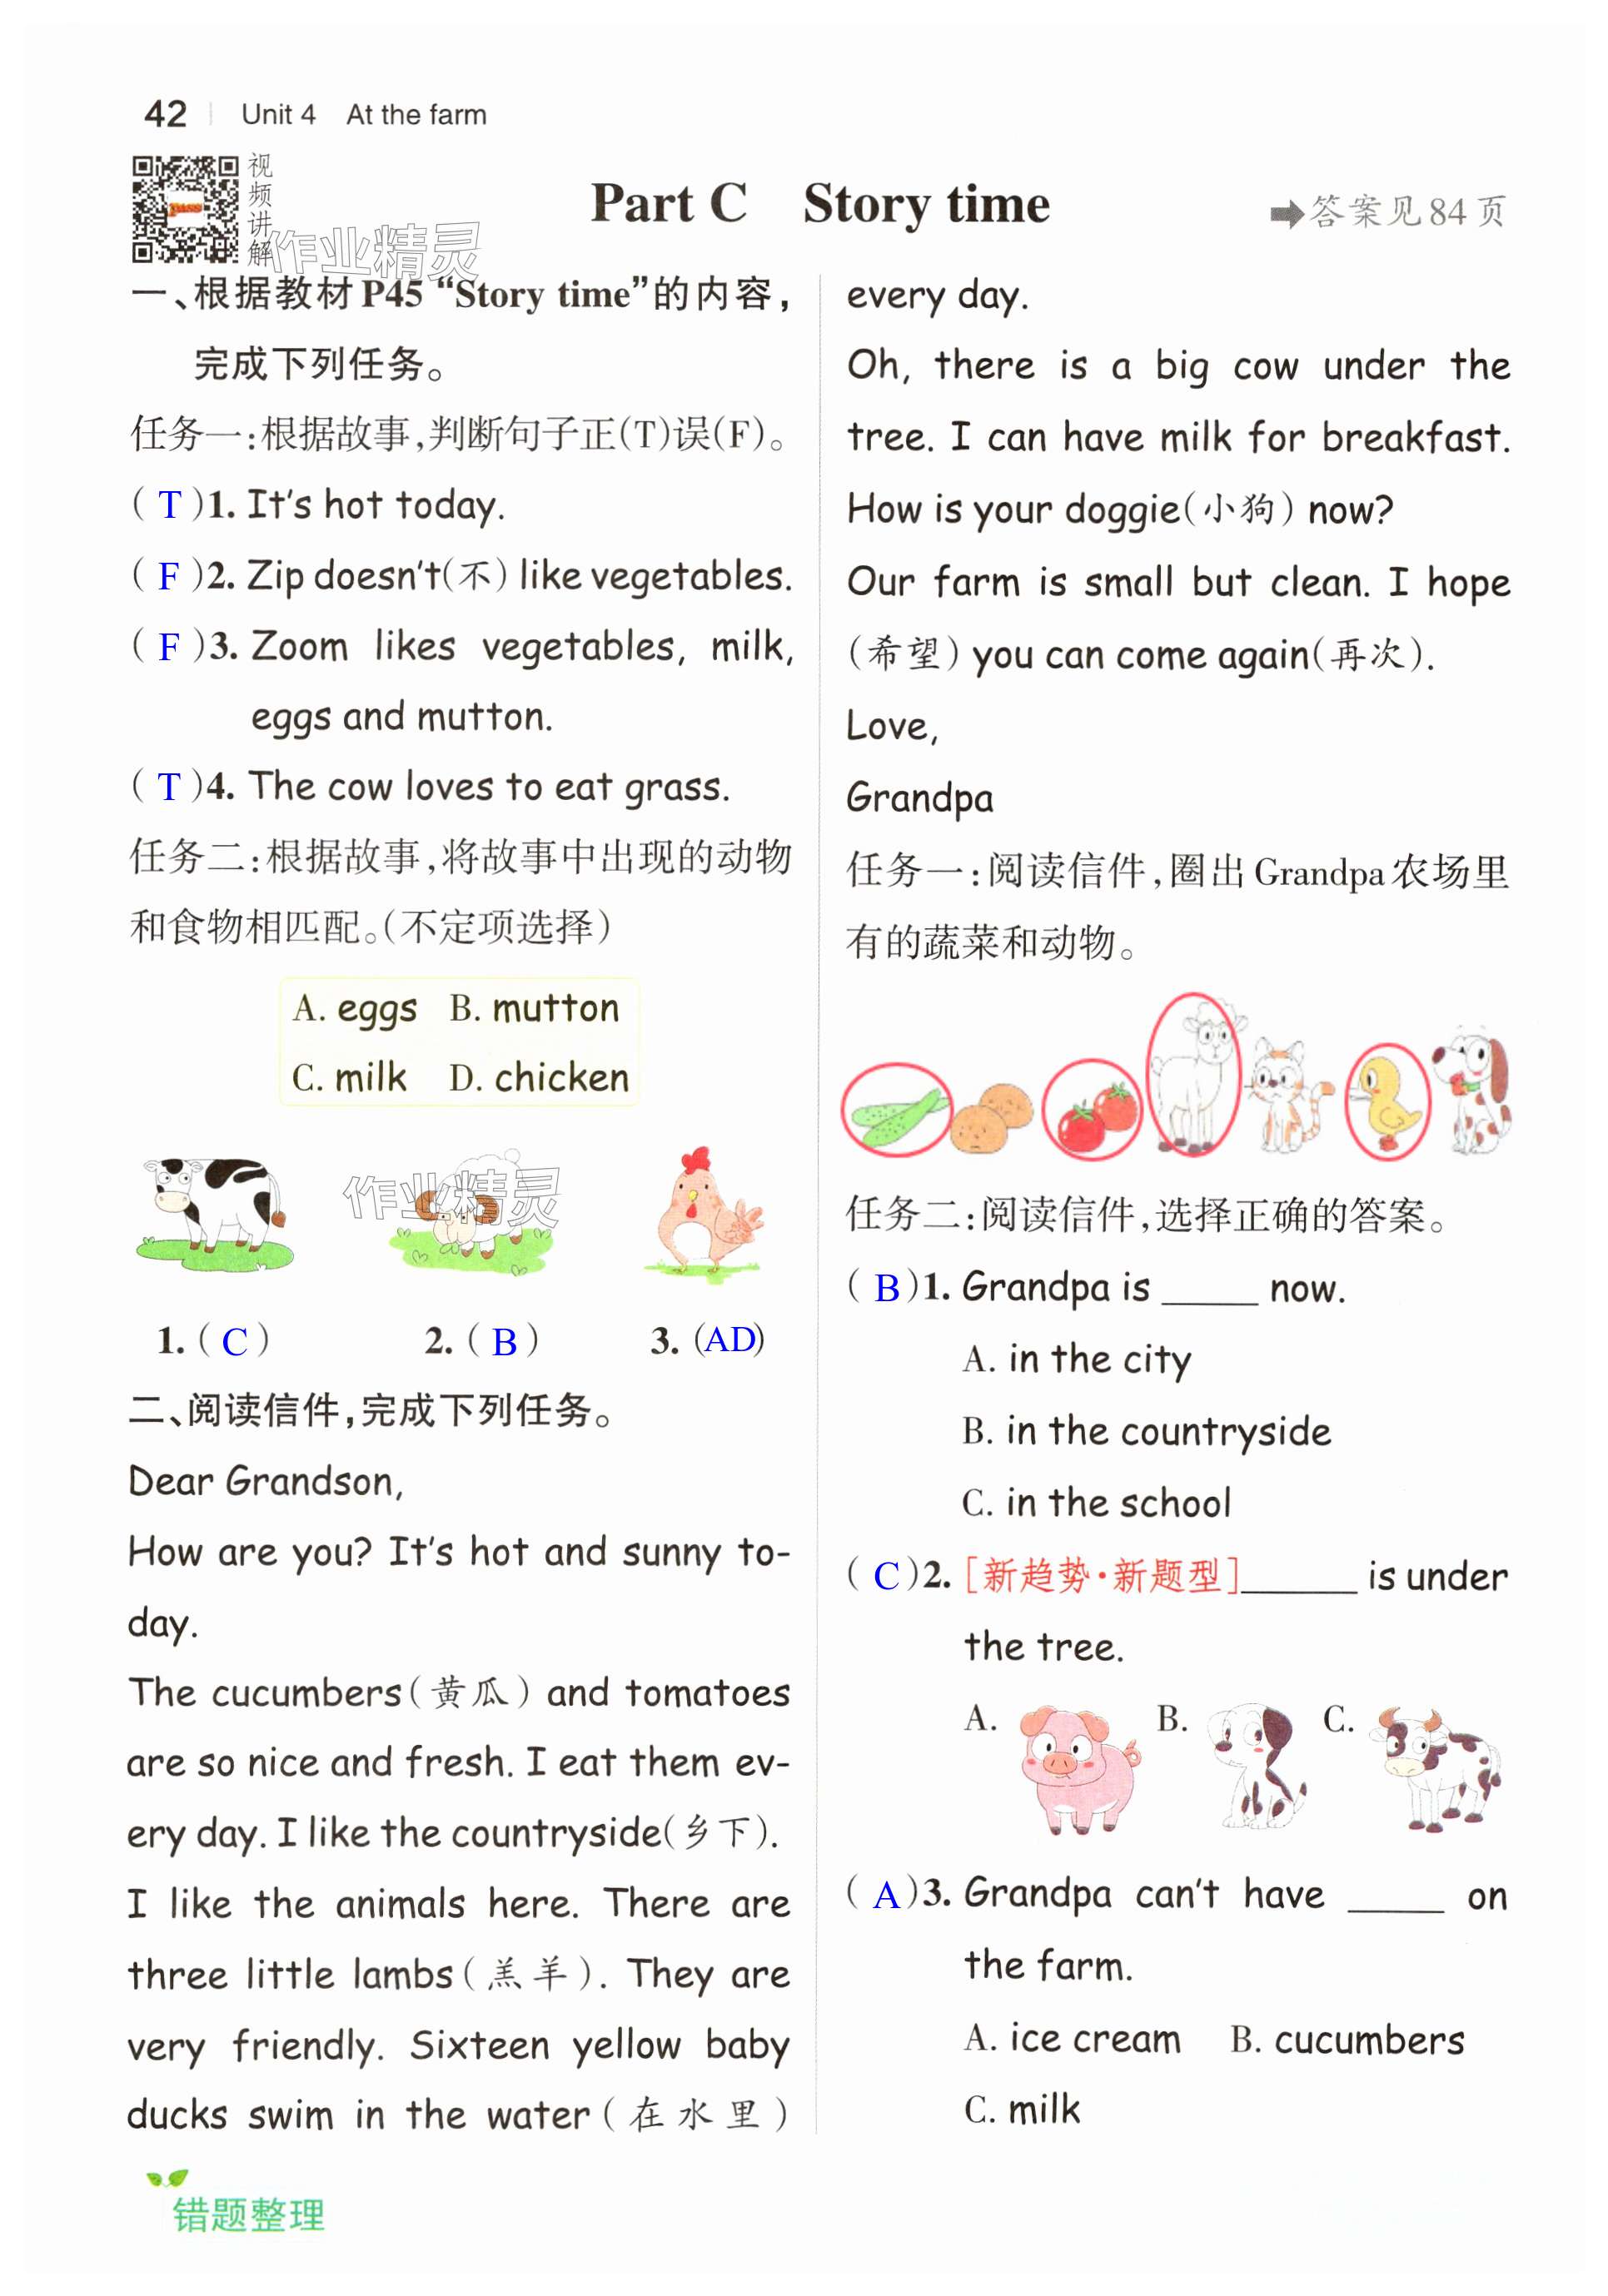 42 Unit 4 At the farm
视频讲解
Part C Story time
答案见84页
作业精灵
一、根据教材P45 “Story time”的内容，
完成下列任务。
任务一:根据故事,判断句子正(T)误(F)。
( T )1. It's hot today.
( F )2. Zip doesn't(不) like vegetables.
( F )3. Zoom likes vegetables, milk,
eggs and mutton.
( T )4. The cow loves to eat grass.
任务二:根据故事,将故事中出现的动物
和食物相匹配。(不定项选择)
A. eggs B. mutton
C. milk D. chicken
作业精灵
1. ( C ) 2. ( B ) 3. (AD)
二、阅读信件,完成下列任务。
Dear Grandson,
How are you? It's hot and sunny to-
day.
The cucumbers(黄瓜) and tomatoes
are so nice and fresh. I eat them ev-
ery day. I like the countryside(乡下).
I like the animals here. There are
three little lambs(羔羊). They are
very friendly. Sixteen yellow baby
ducks swim in the water(在水里)
every day.
Oh, there is a big cow under the
tree. I can have milk for breakfast.
How is your doggie(小狗) now?
Our farm is small but clean. I hope
(希望) you can come again(再次).
Love,
Grandpa
任务一:阅读信件,圈出Grandpa农场里
有的蔬菜和动物。
任务二:阅读信件,选择正确的答案。
( B )1. Grandpa is _____ now.
A. in the city
B. in the countryside
C. in the school
( C )2. [新趋势·新题型]______ is under
the tree.
A. B. C.
( A )3. Grandpa can't have _____ on
the farm.
A. ice cream B. cucumbers
C. milk
错题整理